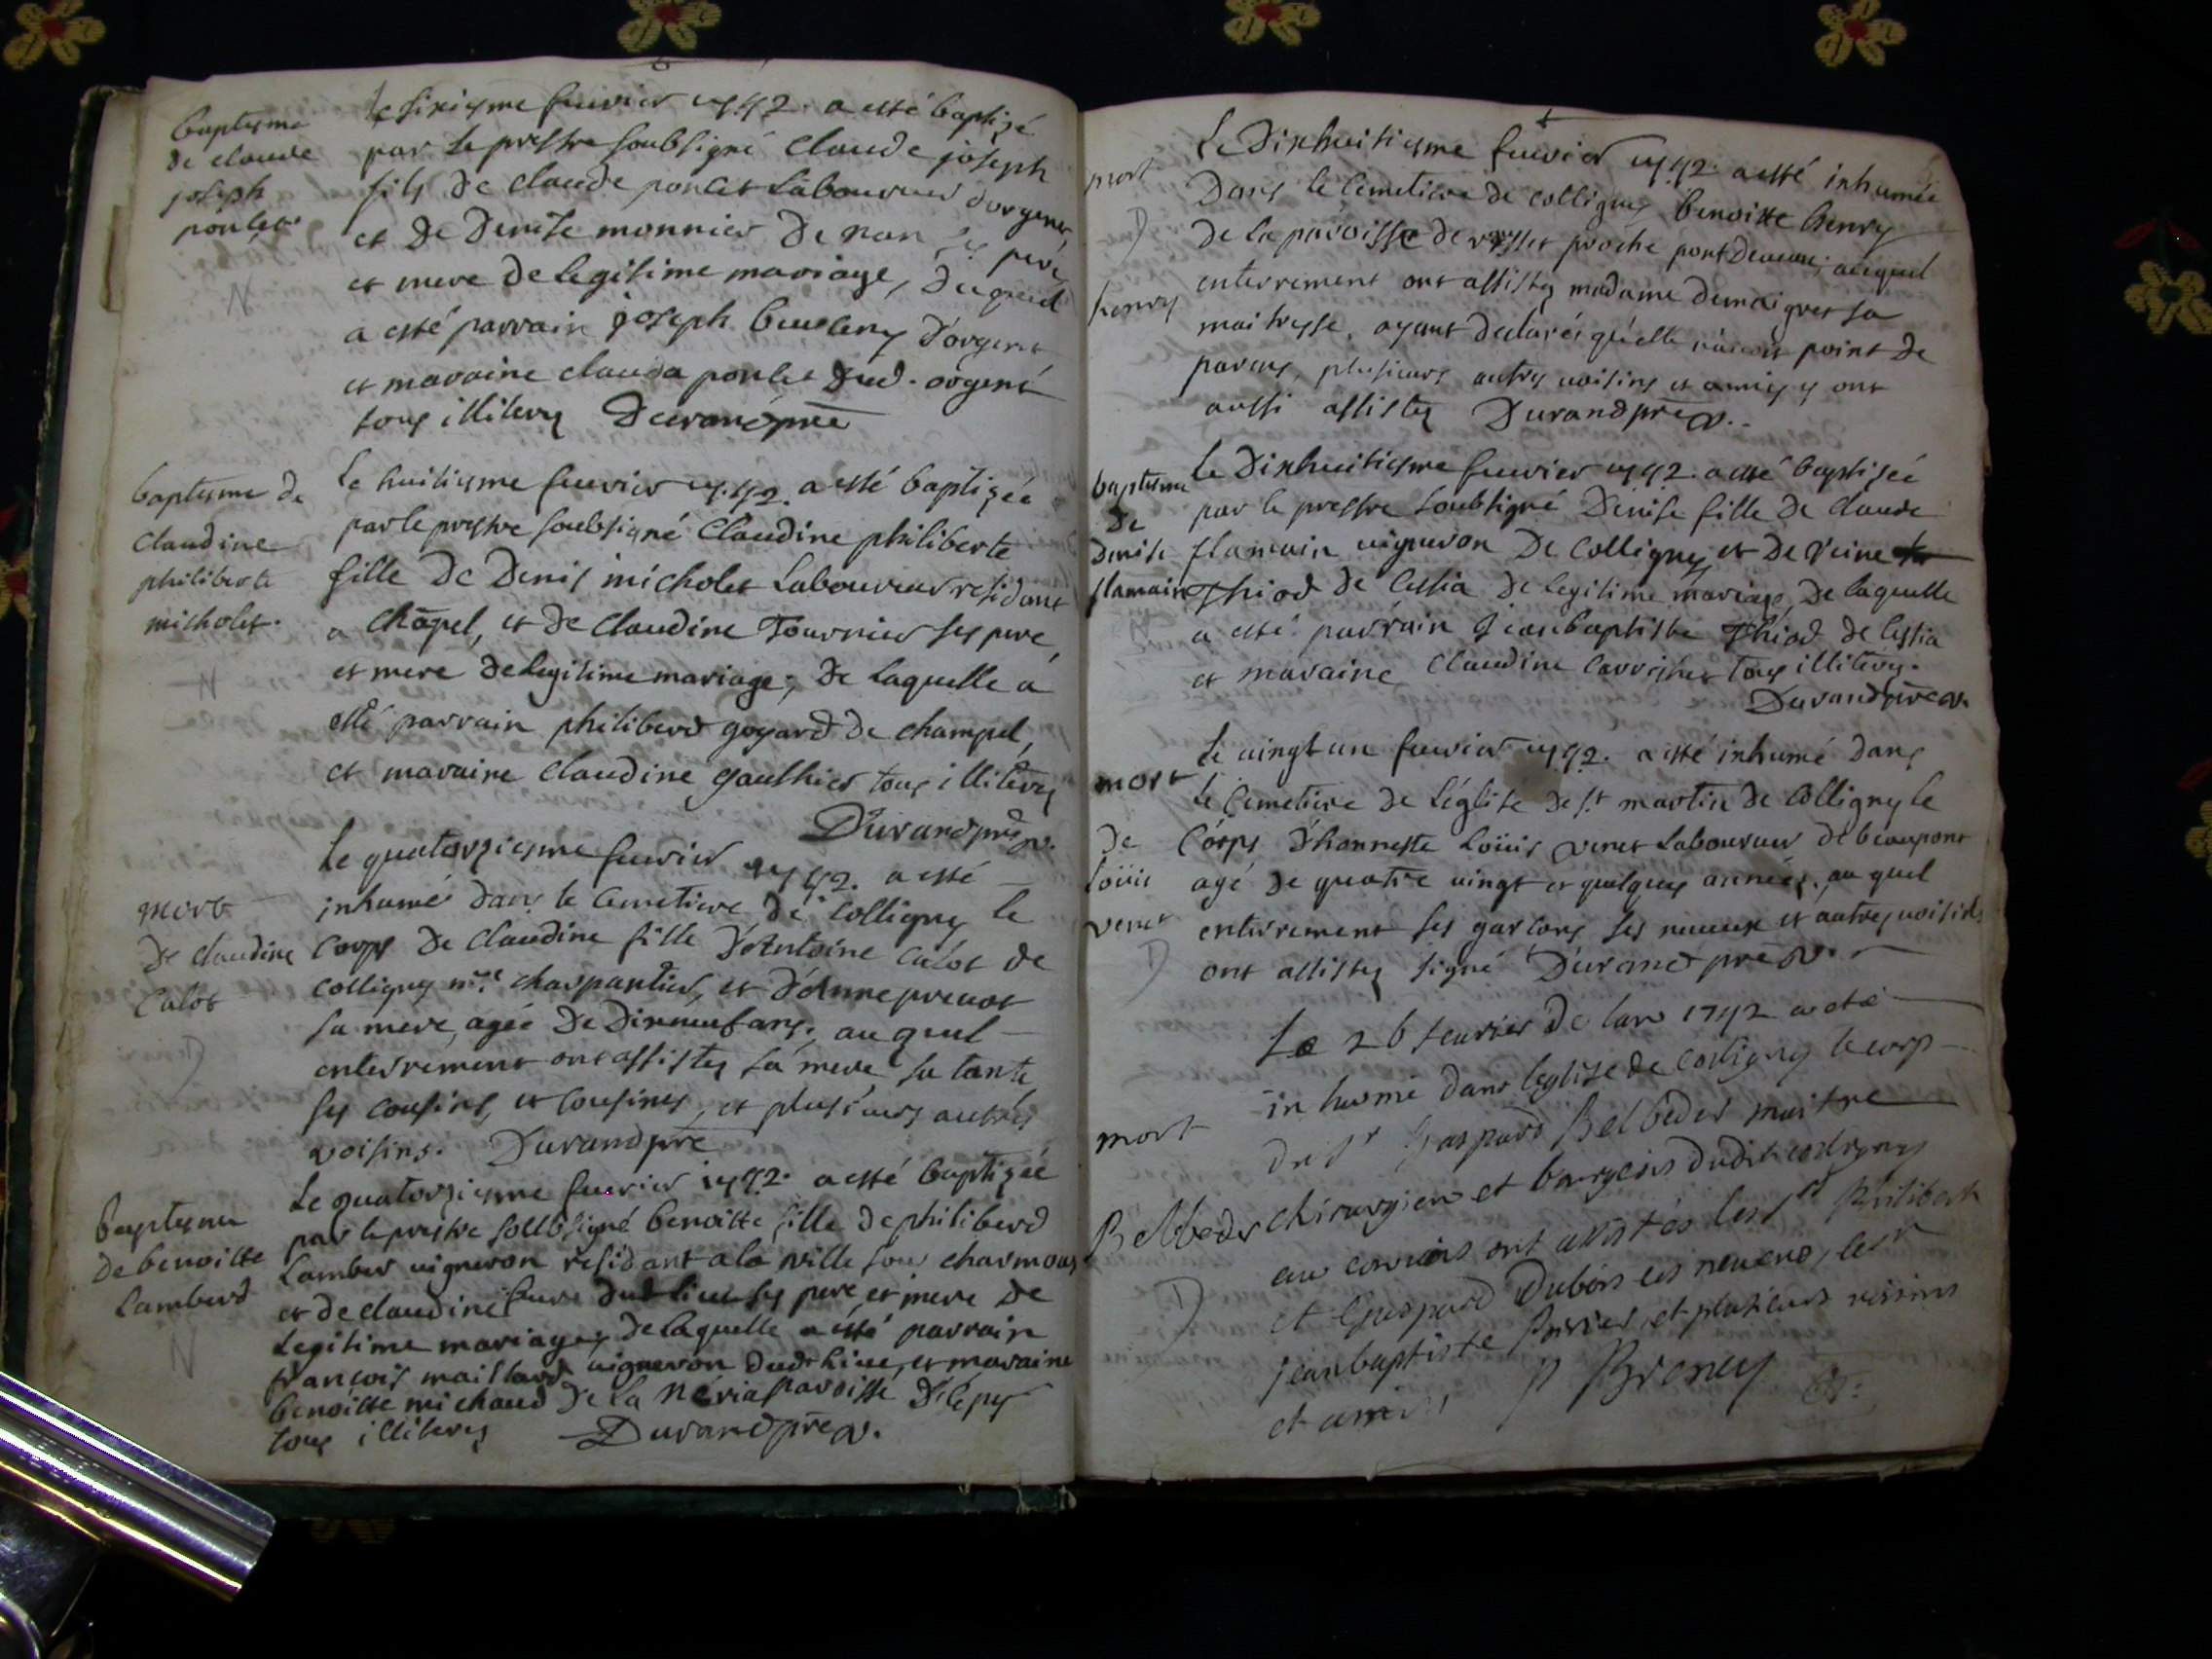 baptesme
de claude
joseph
poncet.
N
le sixiesme feuvier 1742. a esté baptizé
par le prestre soubsigné Claude joseph
fils de claude poncet Laboureur d'orgenet,
et de Denise monnier de nan ses pere
et mere de legitime mariage, duquel
a esté parrain joseph d'orgenet
et maraine clauda poncet dud. orgené
tous illiterez Durand pre
baptesme de
Claudine
philiberte
micholet.
N
Le huitiesme feuvier 1742. a esté baptizée
par le prestre soubsigné Claudine philiberte
fille de Denis micholet Laboureur residant
a chapel, et de Claudine Tournier ses pere
et mere de legitime mariage; de laquelle a
esté parrain philiberd goyard de champel,
et maraine Claudine gauthier tous illiterez
Durand pre v.
mort
de claudine
Calot
D
Le quatorziesme feuvier 1742. a esté
inhumé dans le cemetiere de colligny le
corps de Claudine fille d'Antoine Calot de
colligny me. charpantier, et d'Anne prenot
sa mere, agée de dixneuf ans, au quel
enterrement ont assistez sa mere sa tante
ses cousins, et cousines, et plusieurs autres
voisins. Durand pre
baptesme
de benoitte
Lamberd
N
Le quatorziesme feuvier 1742. a esté baptizée
par le prestre soubsigné benoitte fille de philiberd
Lamber vigneron residant a la ville sous charmoux
et de claudine dud lieu ses pere et mere de
Legitime mariage, de laquelle a esté parrain
francois maillard vigneron dud. lieu, et maraine
benoitte michaud de la Néria paroisse d'épy
tous illiterez Durand pre v.
mort
D
henry
Le Dixhuitiesme feuvier 1742. a esté inhumée
Dans le Cemetiere de colligny benoitte henry
de la paroisse de proche pont deveux; auquel
enterrement ont assistez madame demaigret sa
maitresse, ayant declarés qu'elle n'avoit point de
parens, plusieurs autres voisins et amis y ont
aussi assistez Durand pre v.
baptesme
de
denise
flamain
Le Dixhuitiesme feuvier 1742. a esté baptisée
par le prestre soubsigné Denise fille de claude
flamain vigneron de Colligny, et de reine
Thiod de Cessia de legitime mariage, de laquelle
a esté parrain Jean baptiste Thiod de Cessia
et maraine Claudine tous illiterez.
Durand pre v.
mort
de
Loüis
venet
D
Le vingt un feuvier 1742. a esté inhumé dans
le Cemetiere de l'église de St. martin de Colligny le
Corps d'honneste Loüis venet Laboureur de beaupont
agé de quatre vingt et quelques années, au quel
enterrement ses garcons ses neveux et autres voisins
ont assistez signé Durand pre v.
mort
Belbeder
D
Le 26 feurier de lan 1742 a eté
inhumé dans leglise de colligny le corp
du Sr gaspard Belbeder maitre
chirurgien et bourgeois dudit colligny
au convois ont assistés les Srs philibert
et Gaspard Dubois ses neveux, le Sr
jean baptiste et plusieurs voisins
et amis, P Broney